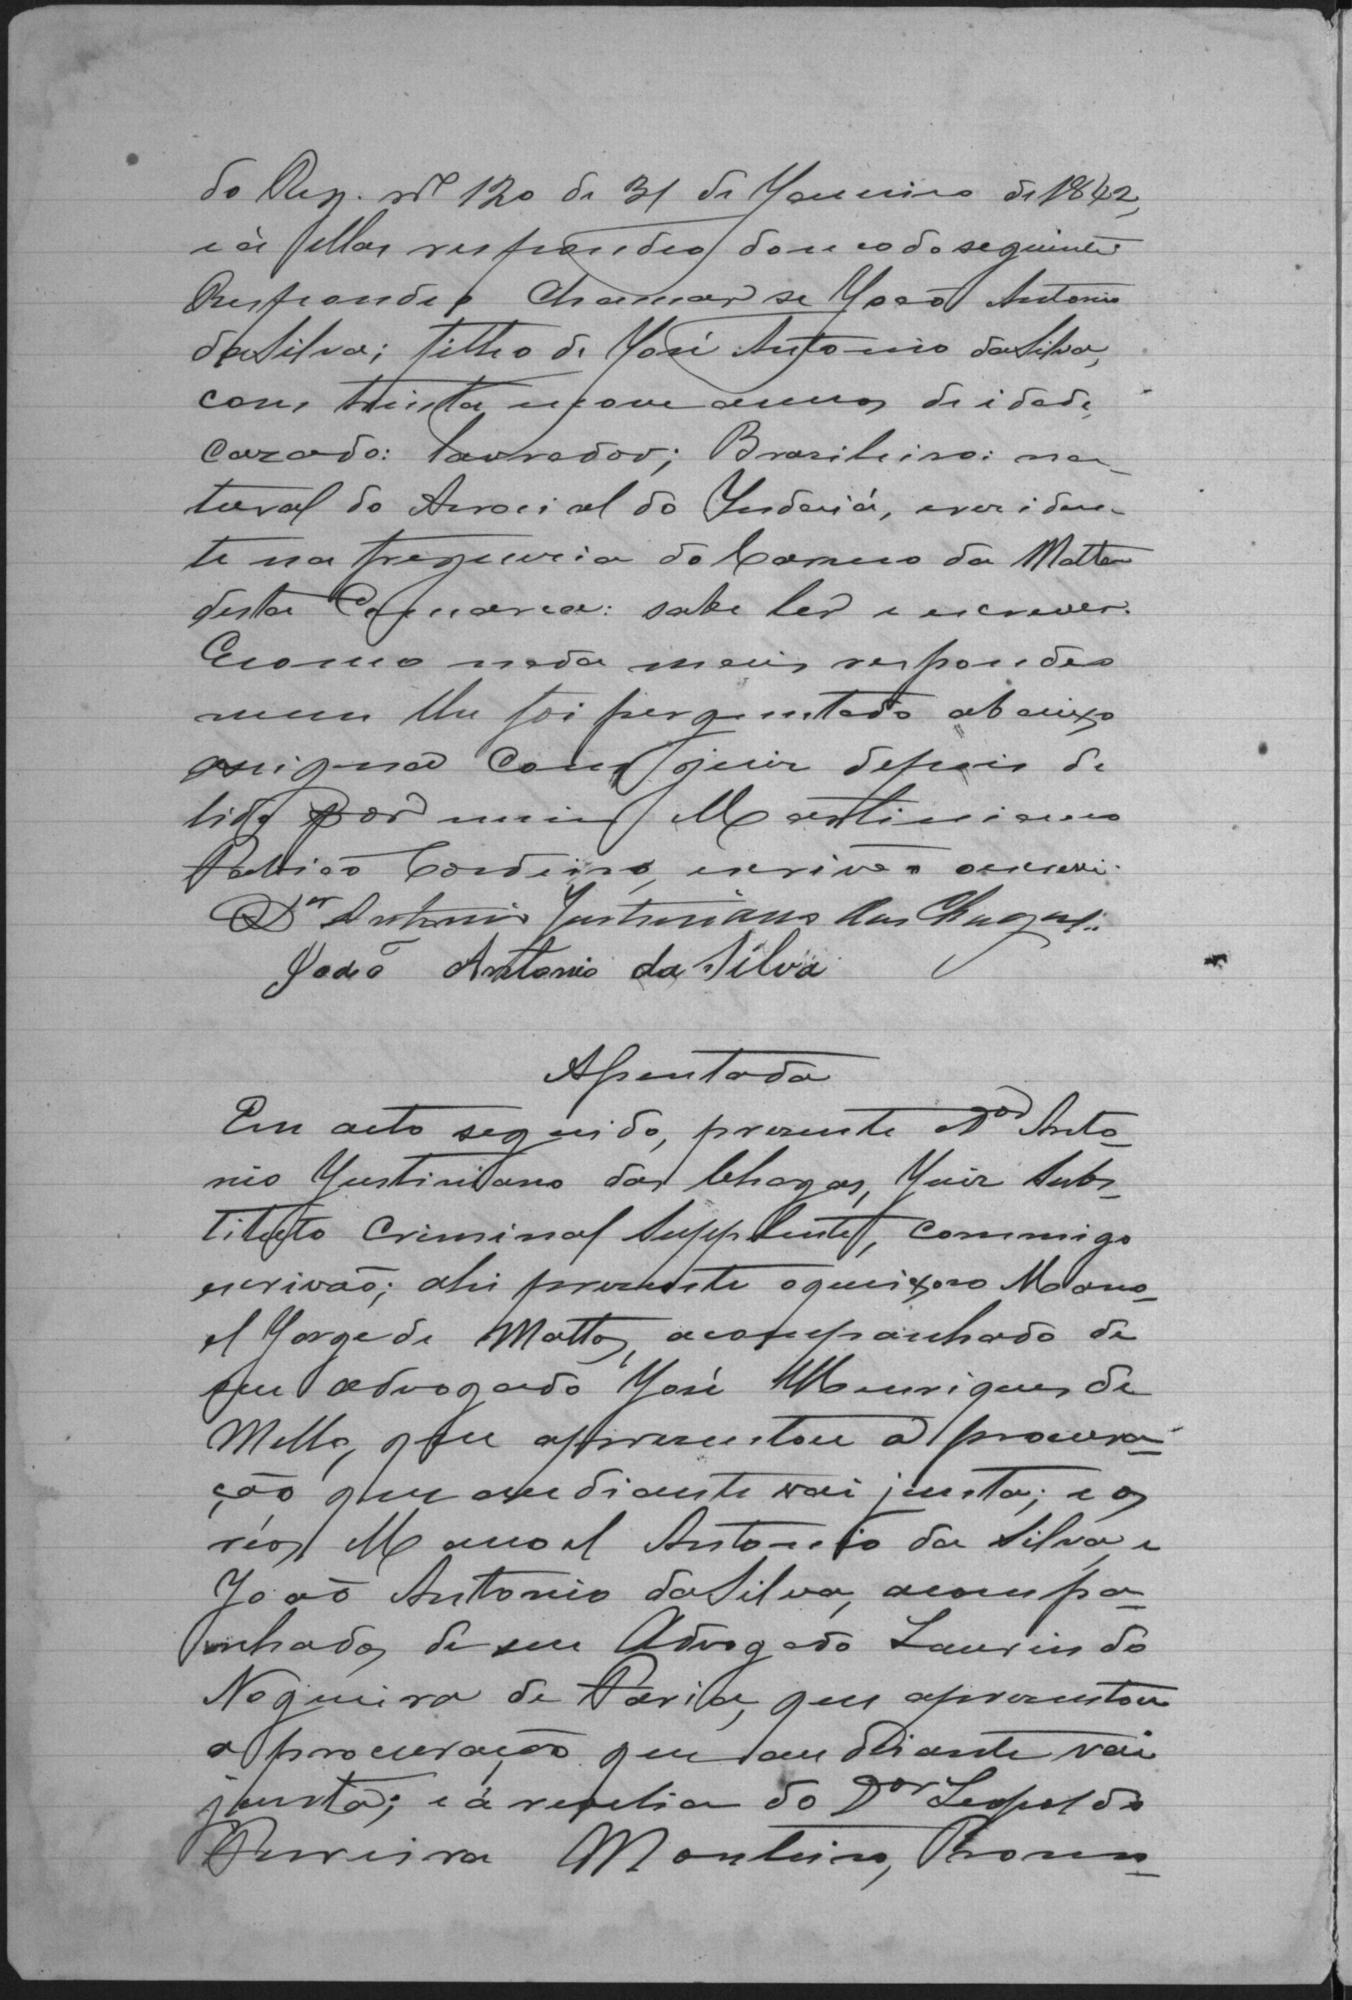 do Reg. nº 120 de 31 de Janeiro de 1842,
e á ellas respondeo do modo seguinte
Respondeo Chamar se João Antonio
da Silva; filho de José Antonio da Silva,
com trinta e nove annos de idade,
cazado: lavrador; Brazileiro: na-
tural do Arraial do Indaiá, e reziden-
te na freguezia do Carmo da Matta
desta Comarca: sabe ler e escrever.
E como nada mais respondeo
nem lhe foi perguntado abaixo
assigna com o juiz depois de
lido por mim Martiniano
Patricio Cordeiro, escrivão o escrevi.
Dor Antonio Justiniano das Chagas.
João Antonio da Silva
Assentada
Em acto seguido, prezente o Dor Anto-
nio Justiniano das Chagas, Juiz Subs-
tituto Criminal Supplente, commigo
escrivão; ahi prezente o queixozo Mano-
el Jorge de Mattos, acompanhado de
seu advogado José Henriques de
Mello, que aprezentou a procura-
ção que aodiante vai junta; e os
réos Manoel Antonio da Silva e
João Antonio da Silva, acompa-
nhados de seu Advogado Laurindo
Nogueira de Faria, que aprezentou
a procuração que ao diante vai
junta; e á revelia do Dor Leopoldo
Ferreira Monteiro, Promo-